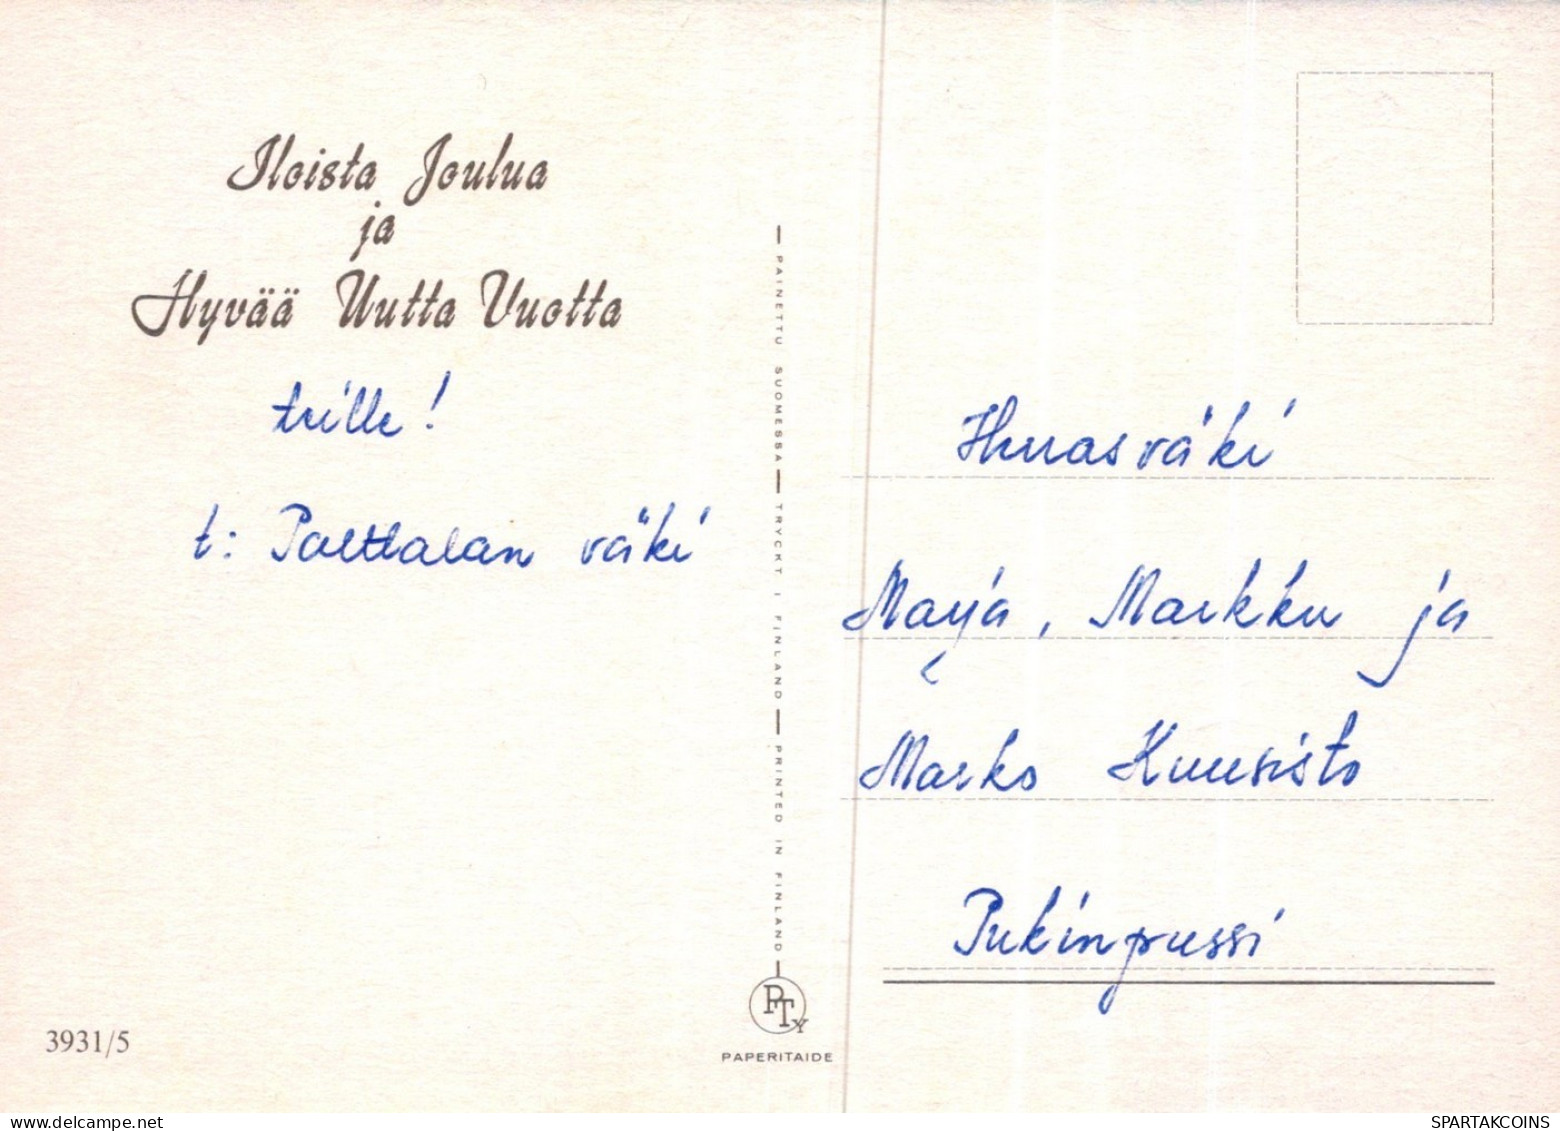 Iloista Joulua
ja
Hyvää Uutta Vuotta
teille!
t: Palttalan väki
PAINETTU SUOMESSA — TRYCKT I FINLAND — PRINTED IN FINLAND
väki
Marja, Markku ja
Marko Kuusisto
Pukinpussi
3931/5
PTY
PAPERITAIDE
SPARTAKCOINS